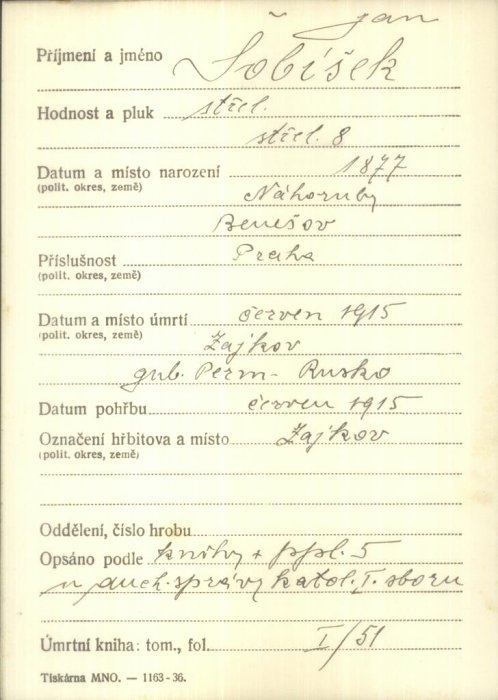 Jan
Příjmení a jméno Šobíšek
Hodnost a pluk střel.
střel. 8
Datum a místo narození 1877
(polit. okres, země) Náhoruby
Benešov
Příslušnost Praha
(polit. okres, země)
Datum a místo úmrtí červen 1915
(polit. okres, země) Zajkov
gub. Perm - Rusko
Datum pohřbu červen 1915
Označení hřbitova a místo Zajkov
(polit. okres, země)
Oddělení, číslo hrobu
Opsáno podle knihy + ppl. 5
u duch. správy katol. I. sboru
Úmrtní kniha: tom., fol. I/51
Tiskárna MNO. — 1163-36.